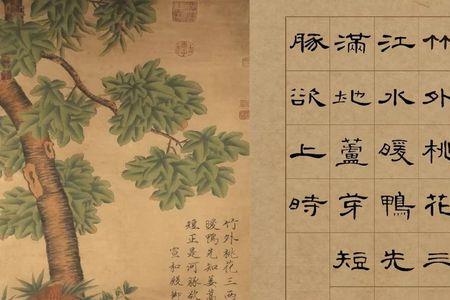 竹外桃花三
江水暖鴨先
滿地蘆芽短
豚欲上時
竹外桃花三兩
暖鴨先知蔞
短正是河豚欲
宣和殿御